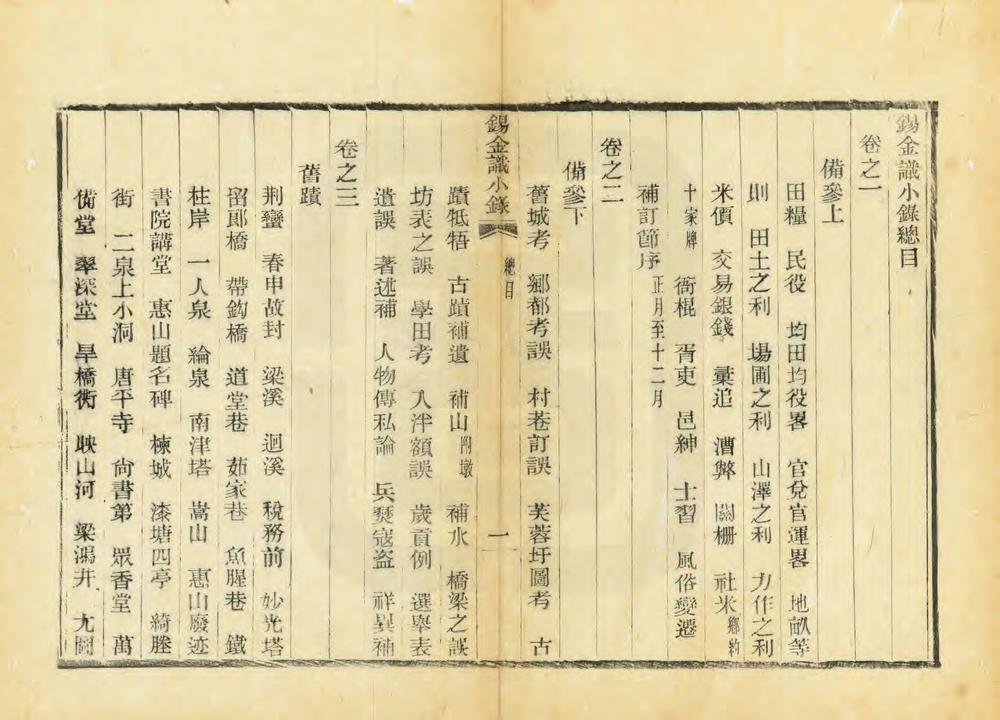 錫金識小錄總目
卷之一
備參上
田糧 民役 均田均役畧 官兌官運畧 地畝等
則 田土之利 場圃之利 山澤之利 力作之利
米價 交易銀錢 彙追 漕弊 關柵 社米鄉約
十家牌 衙棍 胥吏 邑紳 士習 風俗變遷
補訂節序正月至十二月
卷之二
備參下
舊城考 鄉都考誤 村巷訂誤 芙蓉圩圖考 古
錫金識小錄 總目 一
蹟牴牾 古蹟補遺 補山附墩 補水 橋梁之誤
坊表之誤 學田考 入泮額誤 歲貢例 選舉表
遺誤 著述補 人物傳私論 兵燹寇盜 祥異補
卷之三
舊蹟
荆蠻 春申故封 梁溪 迴溪 稅務前 妙光塔
留郞橋 帶鈎橋 道堂巷 茹家巷 魚腥巷 鐵
柱岸 一人泉 綸泉 南津塔 嵩山 惠山廢迹
書院講堂 惠山題名碑 棟城 漆塘四亭 綺塍
街 二泉上小洞 唐平寺 尙書第 眾香堂 萬
備堂 翠深堂 旱橋衖 映山河 梁鴻井 尢圖